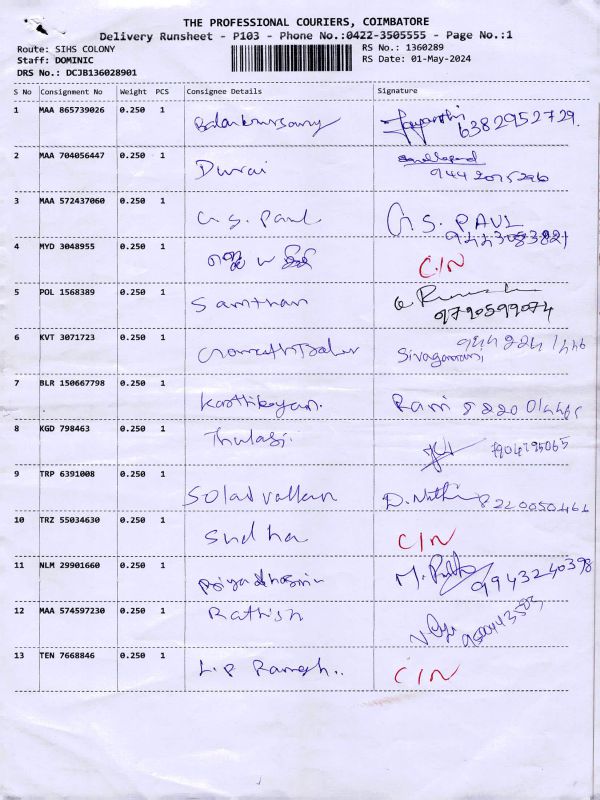 THE PROFESSIONAL COURIERS, COIMBATORE
Delivery Runsheet - P103 - Phone No.:0422-3505555 - Page No.:1
Route: SIHS COLONY
RS No.: 1360289
Staff: DOMINIC
RS Date: 01-May-2024
DRS No.: DCJB136028901
S No Consignment No Weight PCS Consignee Details Signature
1 MAA 865739026 0.250 1
6382952729
2 MAA 704056447 0.250 1 Durai
3 MAA 572437060 0.250 1 G.S. Paul G.S. PAUL
4 MYD 3048955 0.250 1 C/N
5 POL 1568389 0.250 1 Samthan
9790599074
6 KVT 3071723 0.250 1
7 BLR 150667798 0.250 1 Karthikeyan. Ravi
8 KGD 798463 0.250 1 Thulasi.
9 TRP 6391008 0.250 1 D. Nathi
10 TRZ 55034630 0.250 1 Sudha C/N
11 NLM 29901660 0.250 1 9943240398
12 MAA 574597230 0.250 1 Rathish
13 TEN 7668846 0.250 1 L.P Ramesh.. C/N